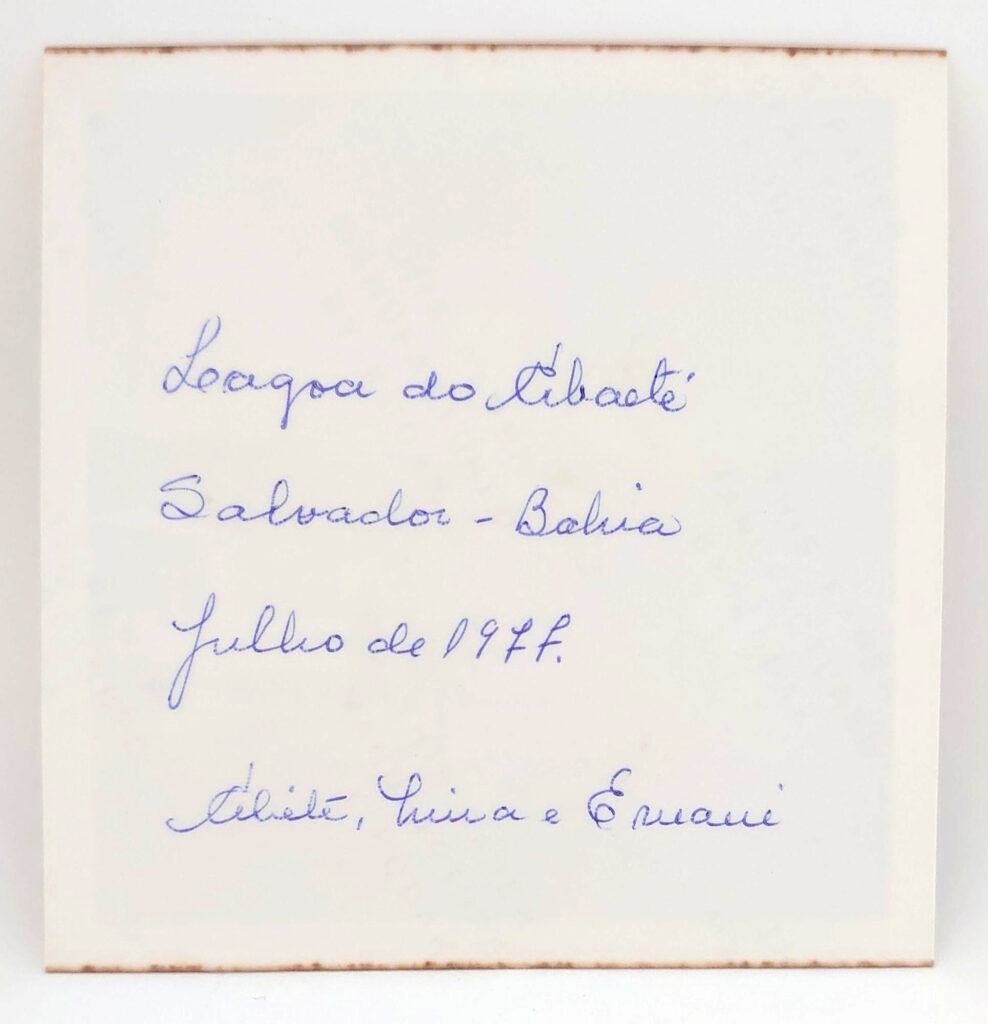 Lagoa do Abaeté
Salvador - Bahia
Julho de 1977.
e Ernani